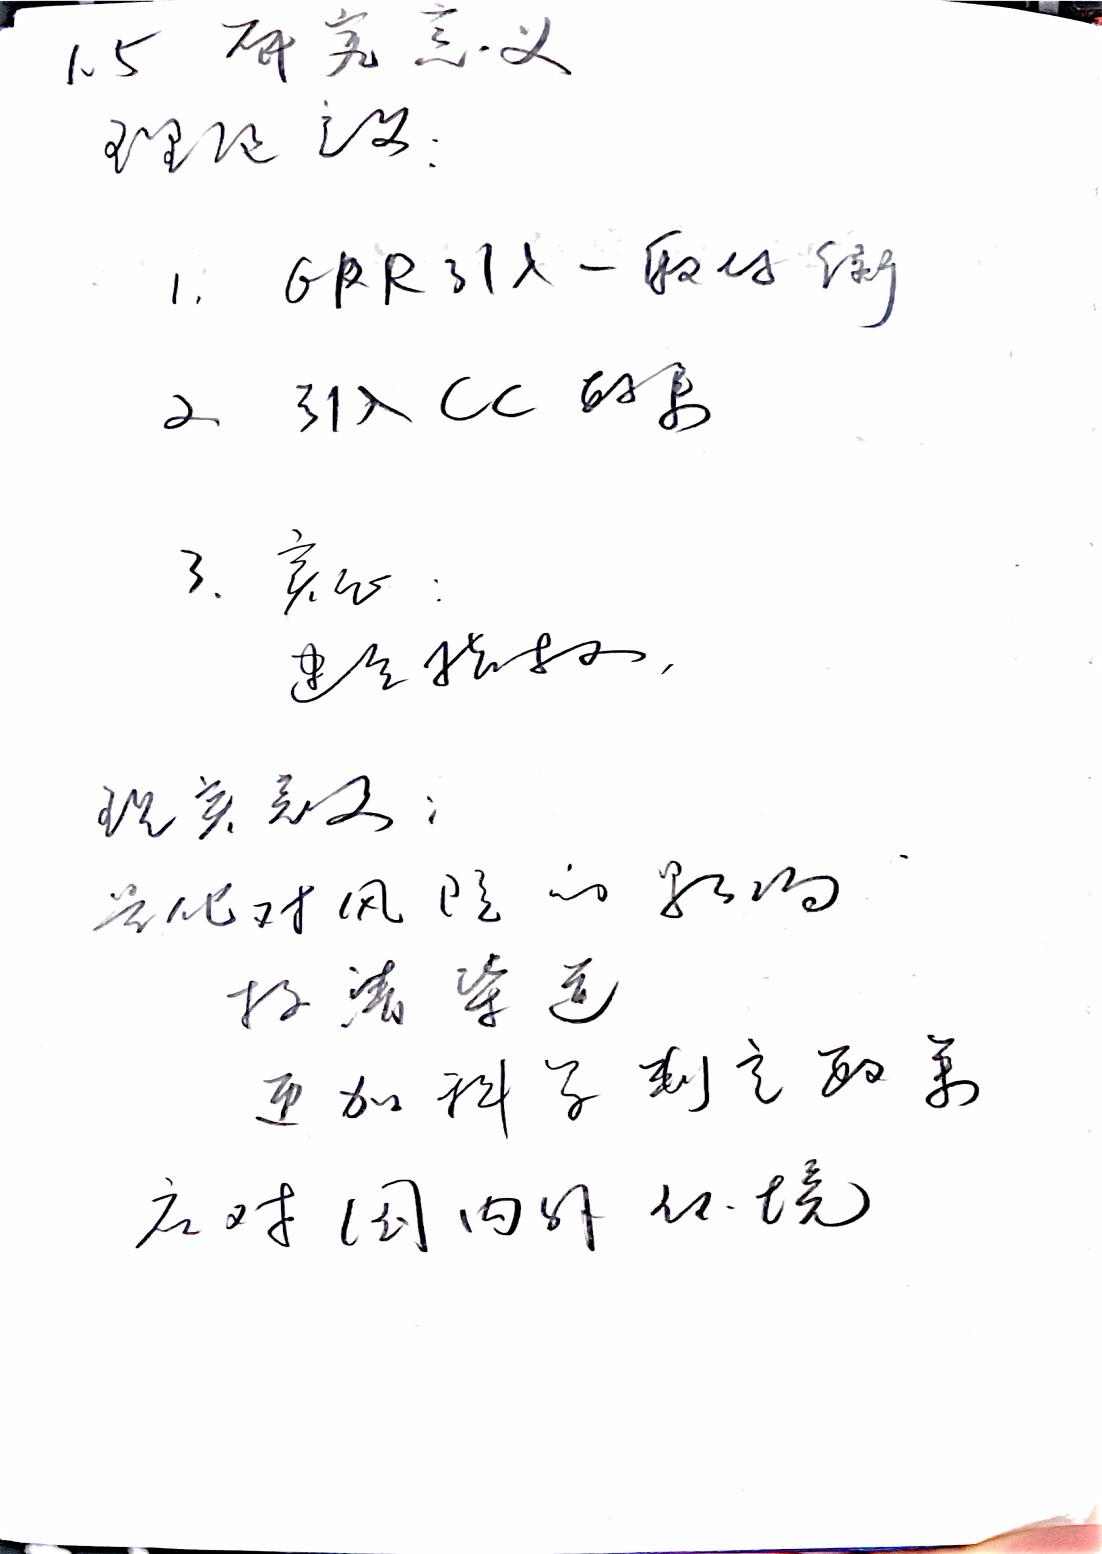 1.5 研究意义
理论意义:
1. GPR引入一般均衡
2 引入CC政策
3. 实证:
建立指数,
现实意义:
对风险的影响
厘清渠道
更加科学制定政策
应对国内外环境